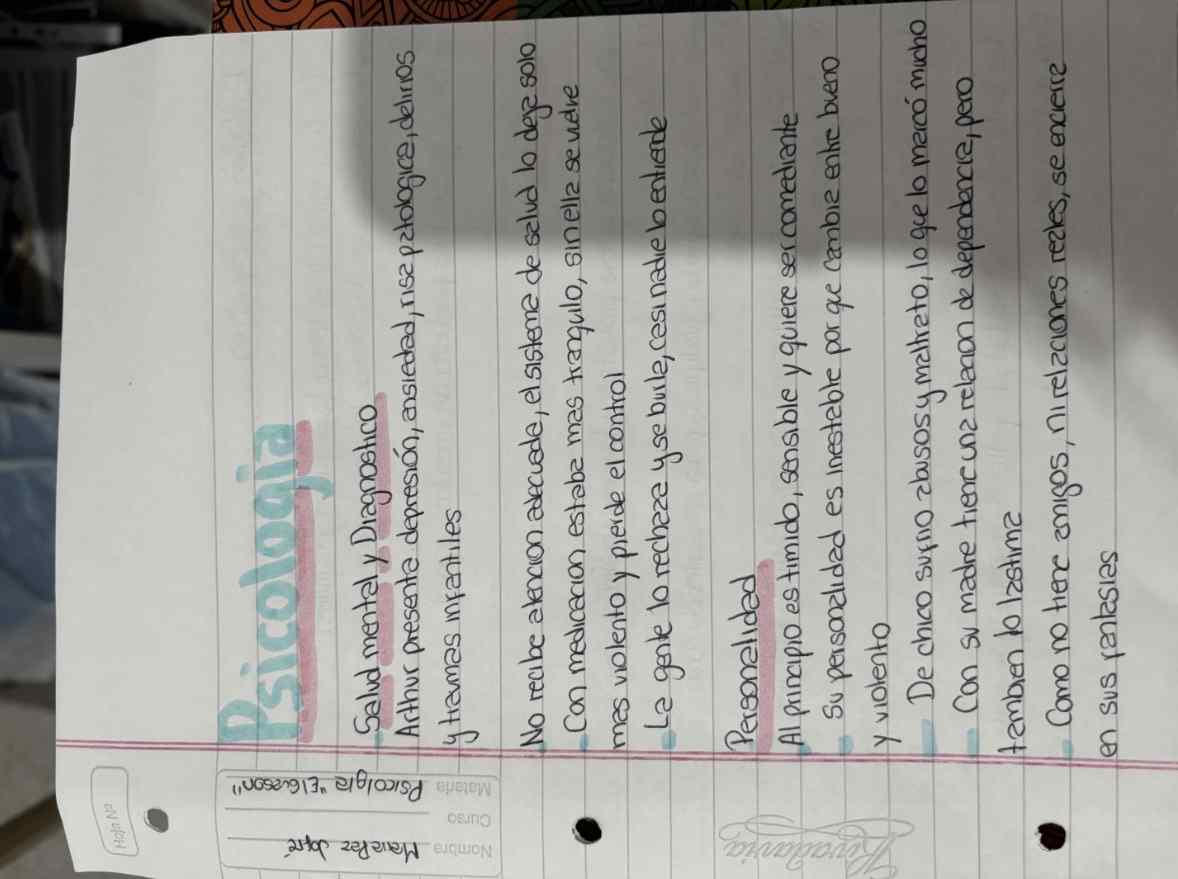 Hoja Nº
Nombre Maria Paz Jofré
Curso
Materia Psicolgia "El Guason"
Rivadavia
Psicologia
Salud mental y Diagnostico
Arthur presenta depresión, ansiedad, risa patologica, delirios
y traumas infantiles
No recibe atencion adecuada, el sistema de salud lo deja solo
Con medicacion estaba mas tranquilo, sin ella se vuelve
mas violento y pierde el control
La gente lo rechaza y se burla, casi nadie lo entiende
Personalidad
Al principio es timido, sensible y quiere ser comediante
Su personalidad es inestable porque cambia entre bueno
y violento
De chico sufrio abusos y maltrato, lo que lo marcó mucho
Con su madre tiene una relacion de dependencia, pero
tambien lo lastima
Como no tiene amigos, ni relaciones reales, se encierra
en sus fantasias